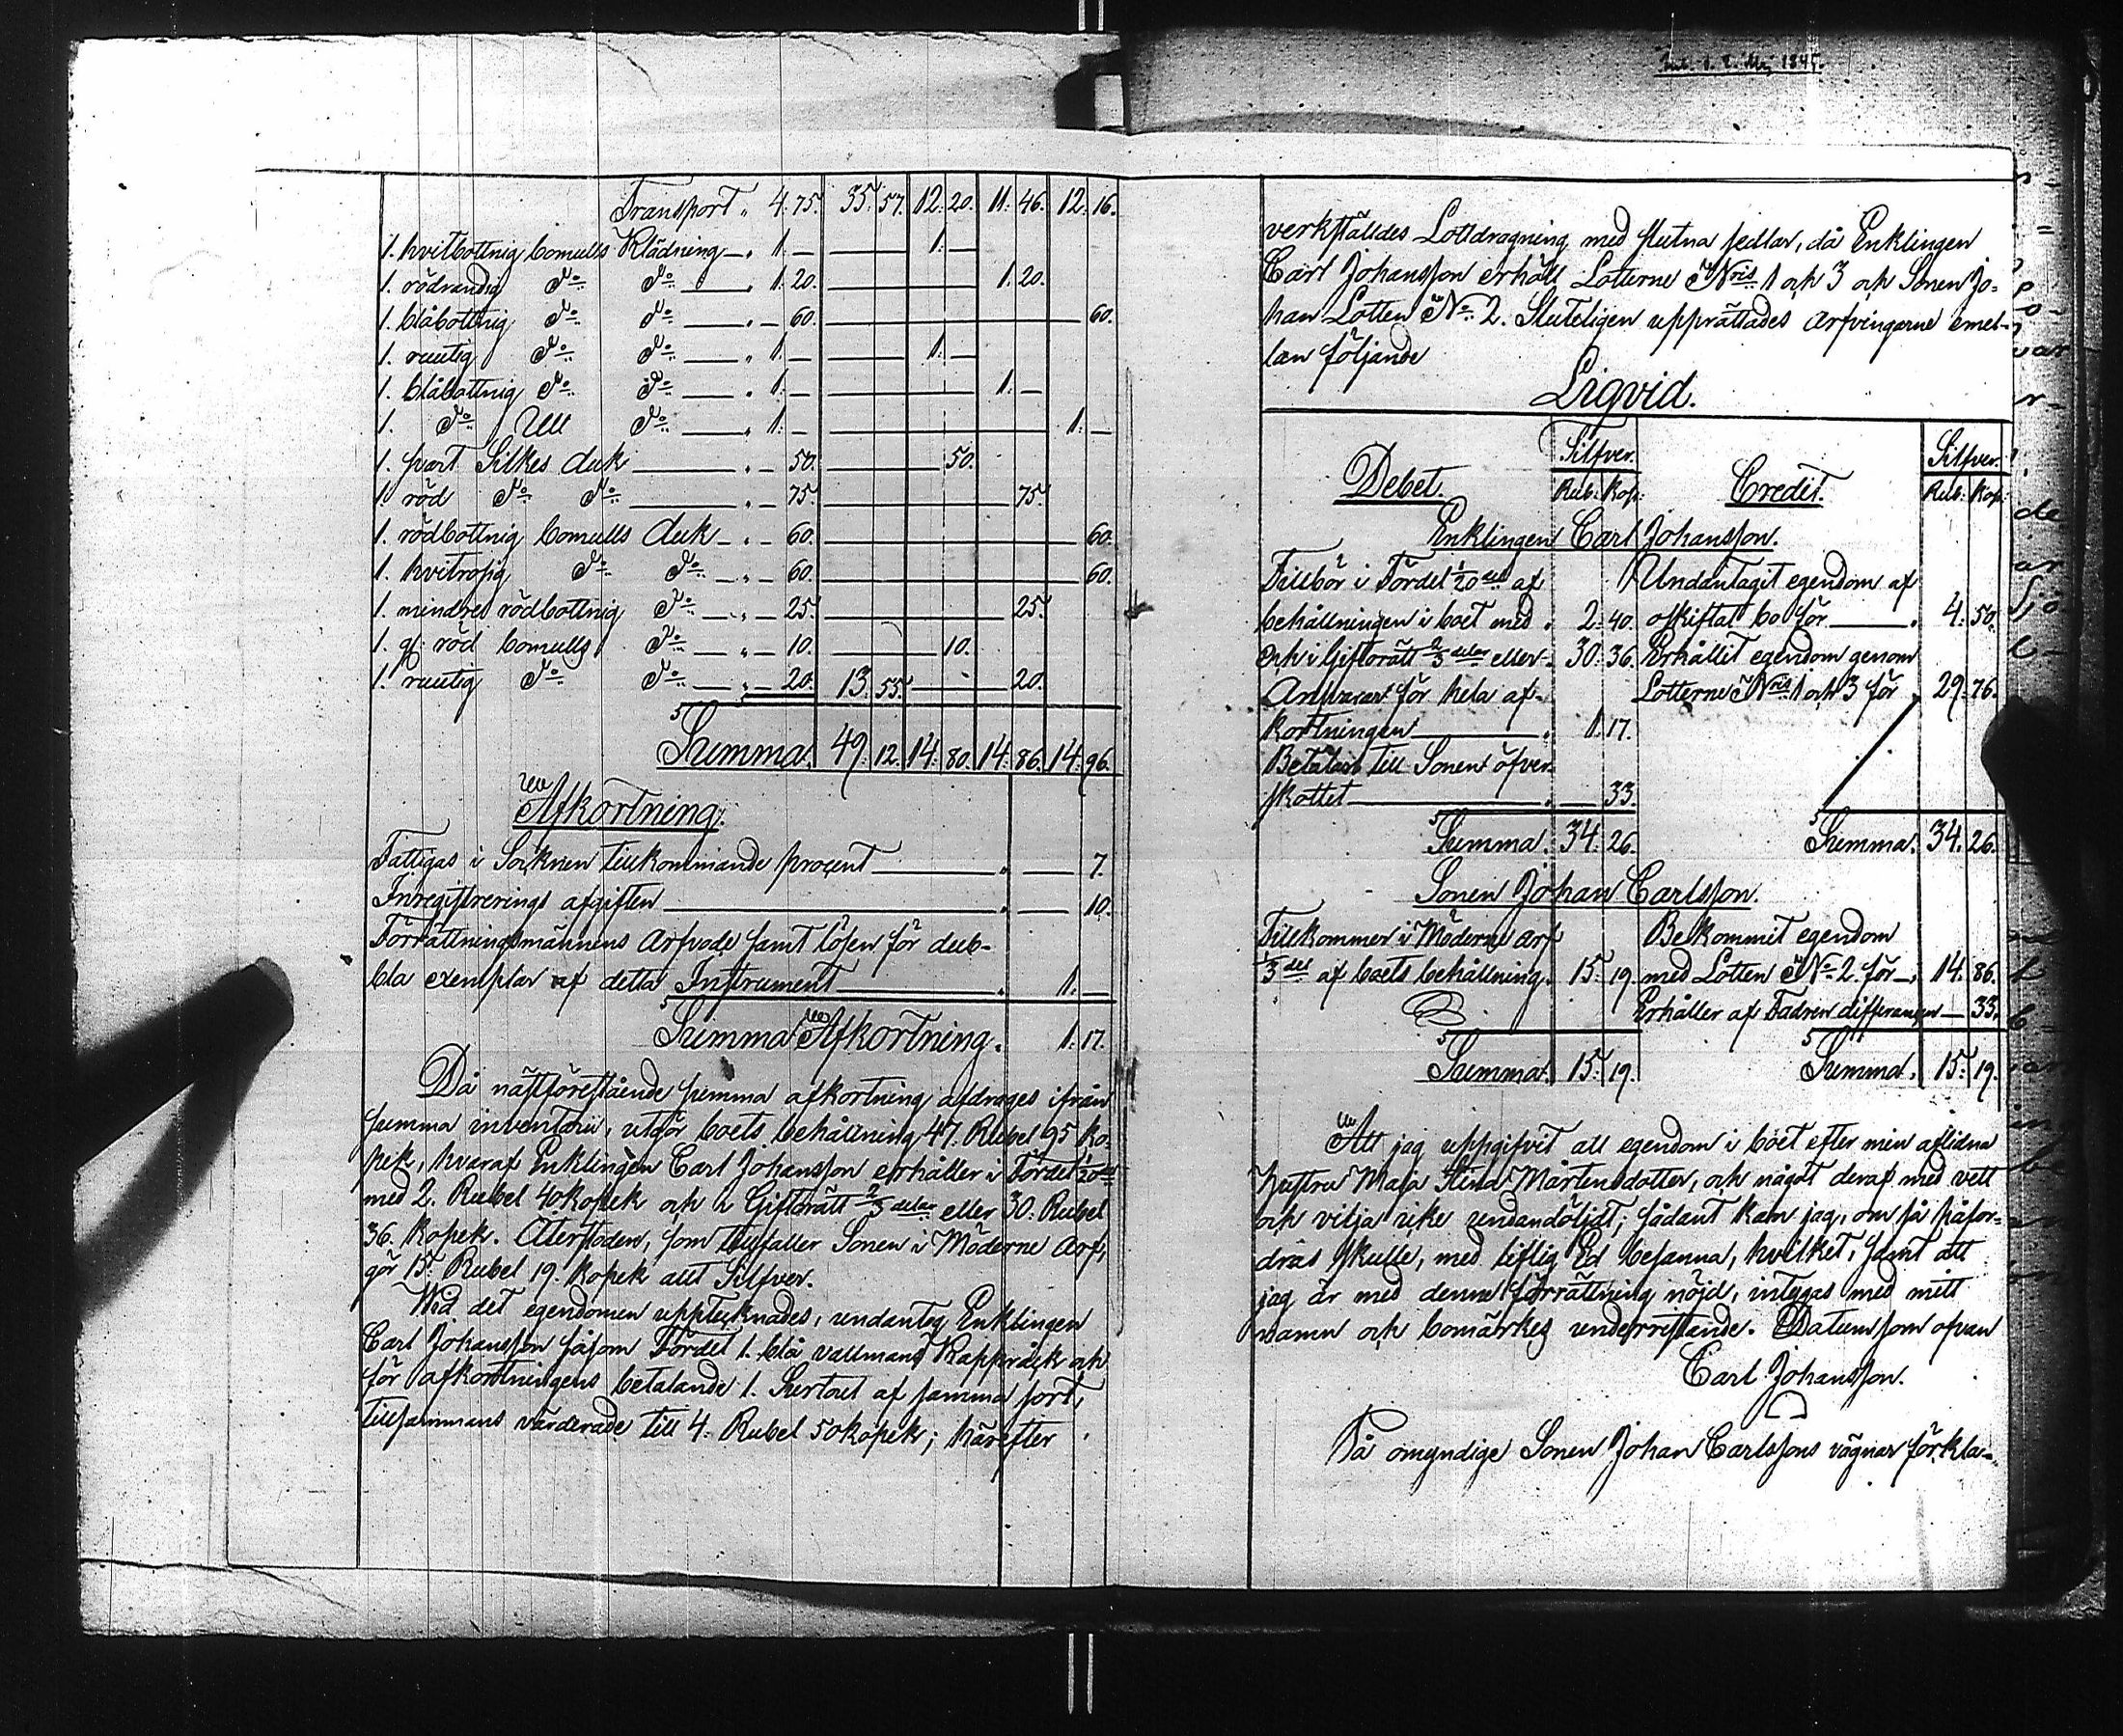 Transport „ 4. 75. 35. 57. 12. 20. 11. 46. 12. 16.
1. hvitbottnig bomulls Klädning — „ 1. — 1. —
1. rödrandig D:o D:o — „ 1. 20. 1. 20.
1. blåbottnig D:o D:o — „ — 60. 60.
1. rutig D:o D:o — „ 1. — 1. —
1. blåbottnig D:o D:o — „ 1. — 1. —
1. D:o Ull D:o — „ 1. — 1. —
1. svart Silkes duk — „ — 50. 50.
1. röd D:o D:o — „ — 75. 75.
1. rödbottnig bomulls duk — „ — 60. 60.
1. hvitrosig D:o D:o — „ — 60. 60.
1. mindre rödbottnig D:o — „ — 25. 25.
1. gl: röd bomulls D:o — „ — 10. 10.
1. rutig D:o D:o — „ — 20. 13. 55. 20.
Summa. 49. 12. 14. 80. 14. 86. 14. 96.
Afkortning.
Fattigas i Socknen tillkommande procent — „ — 7.
Inregistrerings afgiften — „ — 10.
Förrättningsmännens Arfvode samt lösen för dub-
bla exemplar af detta Instrument — „ 1. —
Summa Afkortning. 1. 17.
Då nästförestående summa afkortning afdrages ifrån
summa inventarii, utgör boets behållning 47. Rubel 95 ko-
pek, hvaraf Enklingen Carl Johansson erhåller i Fördel 1/20 del
med 2. Rubel 40 kopek och i Giftorätt 2/3 delar eller 30: Rubel
36. kopek. Återstoden, som tillfaller Sonen i Möderne Arf,
gör 15. Rubel 19. kopek allt Silfver.
Wid det egendomen upptecknades, undantog Enklingen
Carl Johansson såsom Fördel 1. blå vallmans Kappräck och
för afkortningens betalande 1. Surtout af samma sort,
tillsammans värderade till 4. Rubel 50 kopek; härefter
verkställdes Lottdragning med slutna sedlar, då Enklingen
Carl Johansson erhöll Lotterne N:ris 1 och 3 och Sonen Jo-
han Lotten N:o 2. Sluteligen upprättades arfvingarne emel-
lan följande
Liqvid.
Debet. Silfver. Rub: Kop: Credit. Silfver. Rub: Kop:
Enklingen Carl Johansson.
Tillbör i Fördel 1/20 del af Undantagit egendom af
behållningen i boet med „ 2. 40. oskiftat bo för — „ 4. 50.
och i Giftorätt 2/3 delar eller „ 30. 36. Erhållit egendom genom
Ansvarar för hela af- Lotterne N:ris 1 och 3 för „ 29. 76.
kortningen — „ 1. 17.
Betalar till Sonen öfver-
skottet — „ — 33.
Summa. 34. 26. Summa. 34. 26.
Sonen Johan Carlsson.
Tillkommer i Möderne arf Bekommit egendom
1/3 del af boets behållning. 15. 19. med Lotten N:o 2. för — „ 14. 86.
Erhåller af Fadren differansen — 33.
Summa. 15. 19. Summa. 15. 19.
Att jag uppgifvit all egendom i boet efter min aflidna
hustru Maja Stina Mårtensdotter, och något deraf med vett
och vilja icke undandöljdt; sådant kan jag, om så påfor-
dras skulle, med liflig Ed besanna, hvilket, samt att
jag är med denna förrättning nöjd, intygas med mitt
namn och bomärkes underristande. Datum som ofvan
Carl Johansson.
På omyndige Sonen Johan Carlssons vägnar förkla-